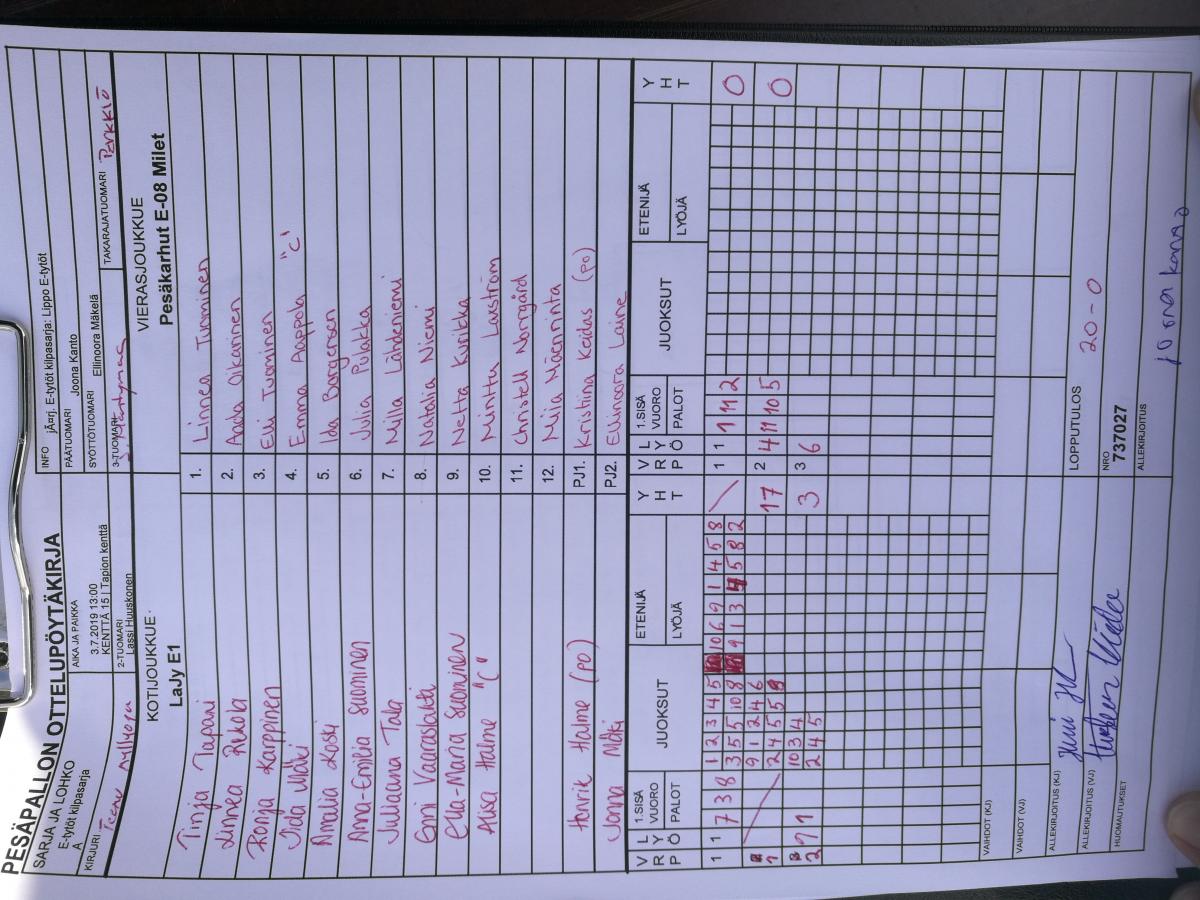 PESÄPALLON OTTELUPÖYTÄKIRJA
SARJA JA LOHKO
E-tytöt kilpasarja
A
AIKA JA PAIKKA
3.7.2019 13:00
KENTTÄ 15 | Tapion kenttä
INFO jÃ¤rj. E-tytöt kilpasarja: Lippo E-tytöt
PÄÄTUOMARI Joona Kanto
SYÖTTÖTUOMARI Ellinoora Mäkelä
KIRJURI Teemu
2-TUOMARI
Lassi Huuskonen
3-TUOMARI
TAKARAJATUOMARI Perkkiö
KOTIJOUKKUE
LaJy E1
VIERASJOUKKUE
Pesäkarhut E-08 Milet
Tinja Tapani 1. Linnea Tuominen
Linnea Rekola 2. Aada Oikarinen
Ronja Karppinen 3. Elli Tuominen
Iida Mäki 4. Emma Aappola "C"
Amalia Koski 5. Ida Borgersen
Anna-Emilia Suominen 6. Julia Pulakka
Julianna Tala 7. Milla Lähdeniemi
Emi Vaaraslahti 8. Natalia Niemi
Ella-Maria Suominen 9. Netta Kurikka
Alisa Halme "C" 10. Minttu Laxström
11. Christell Norrgård
12. Miia Mäenrinta
Henrik Halme (po) PJ1. Kristiina Keidas (po)
Jonna Mäki PJ2. Ellinoora Laine
V R P
L Y Ö
1.SISÄ VUORO
PALOT
JUOKSUT
ETENIJÄ
LYÖJÄ
Y H T
V R P
L Y Ö
1.SISÄ VUORO
PALOT
JUOKSUT
ETENIJÄ
LYÖJÄ
Y H T
1 1 7 3 8
1 2 3 4 5
10 6 9 1 4 5 8
3 5 5 10 8
9 1 3 4 5 8 2
1 1 1 11 2
0
9 1 2 4 6
2 4 5 5 8
17
2 4 11 10 5
0
10 3 4
2 4 5
3
3 6
VAIHDOT (KJ)
VAIHDOT (VJ)
ALLEKIRJOITUS (KJ)
ALLEKIRJOITUS (VJ)
HUOMAUTUKSET
LOPPUTULOS 20-0
NRO
737027
ALLEKIRJOITUS